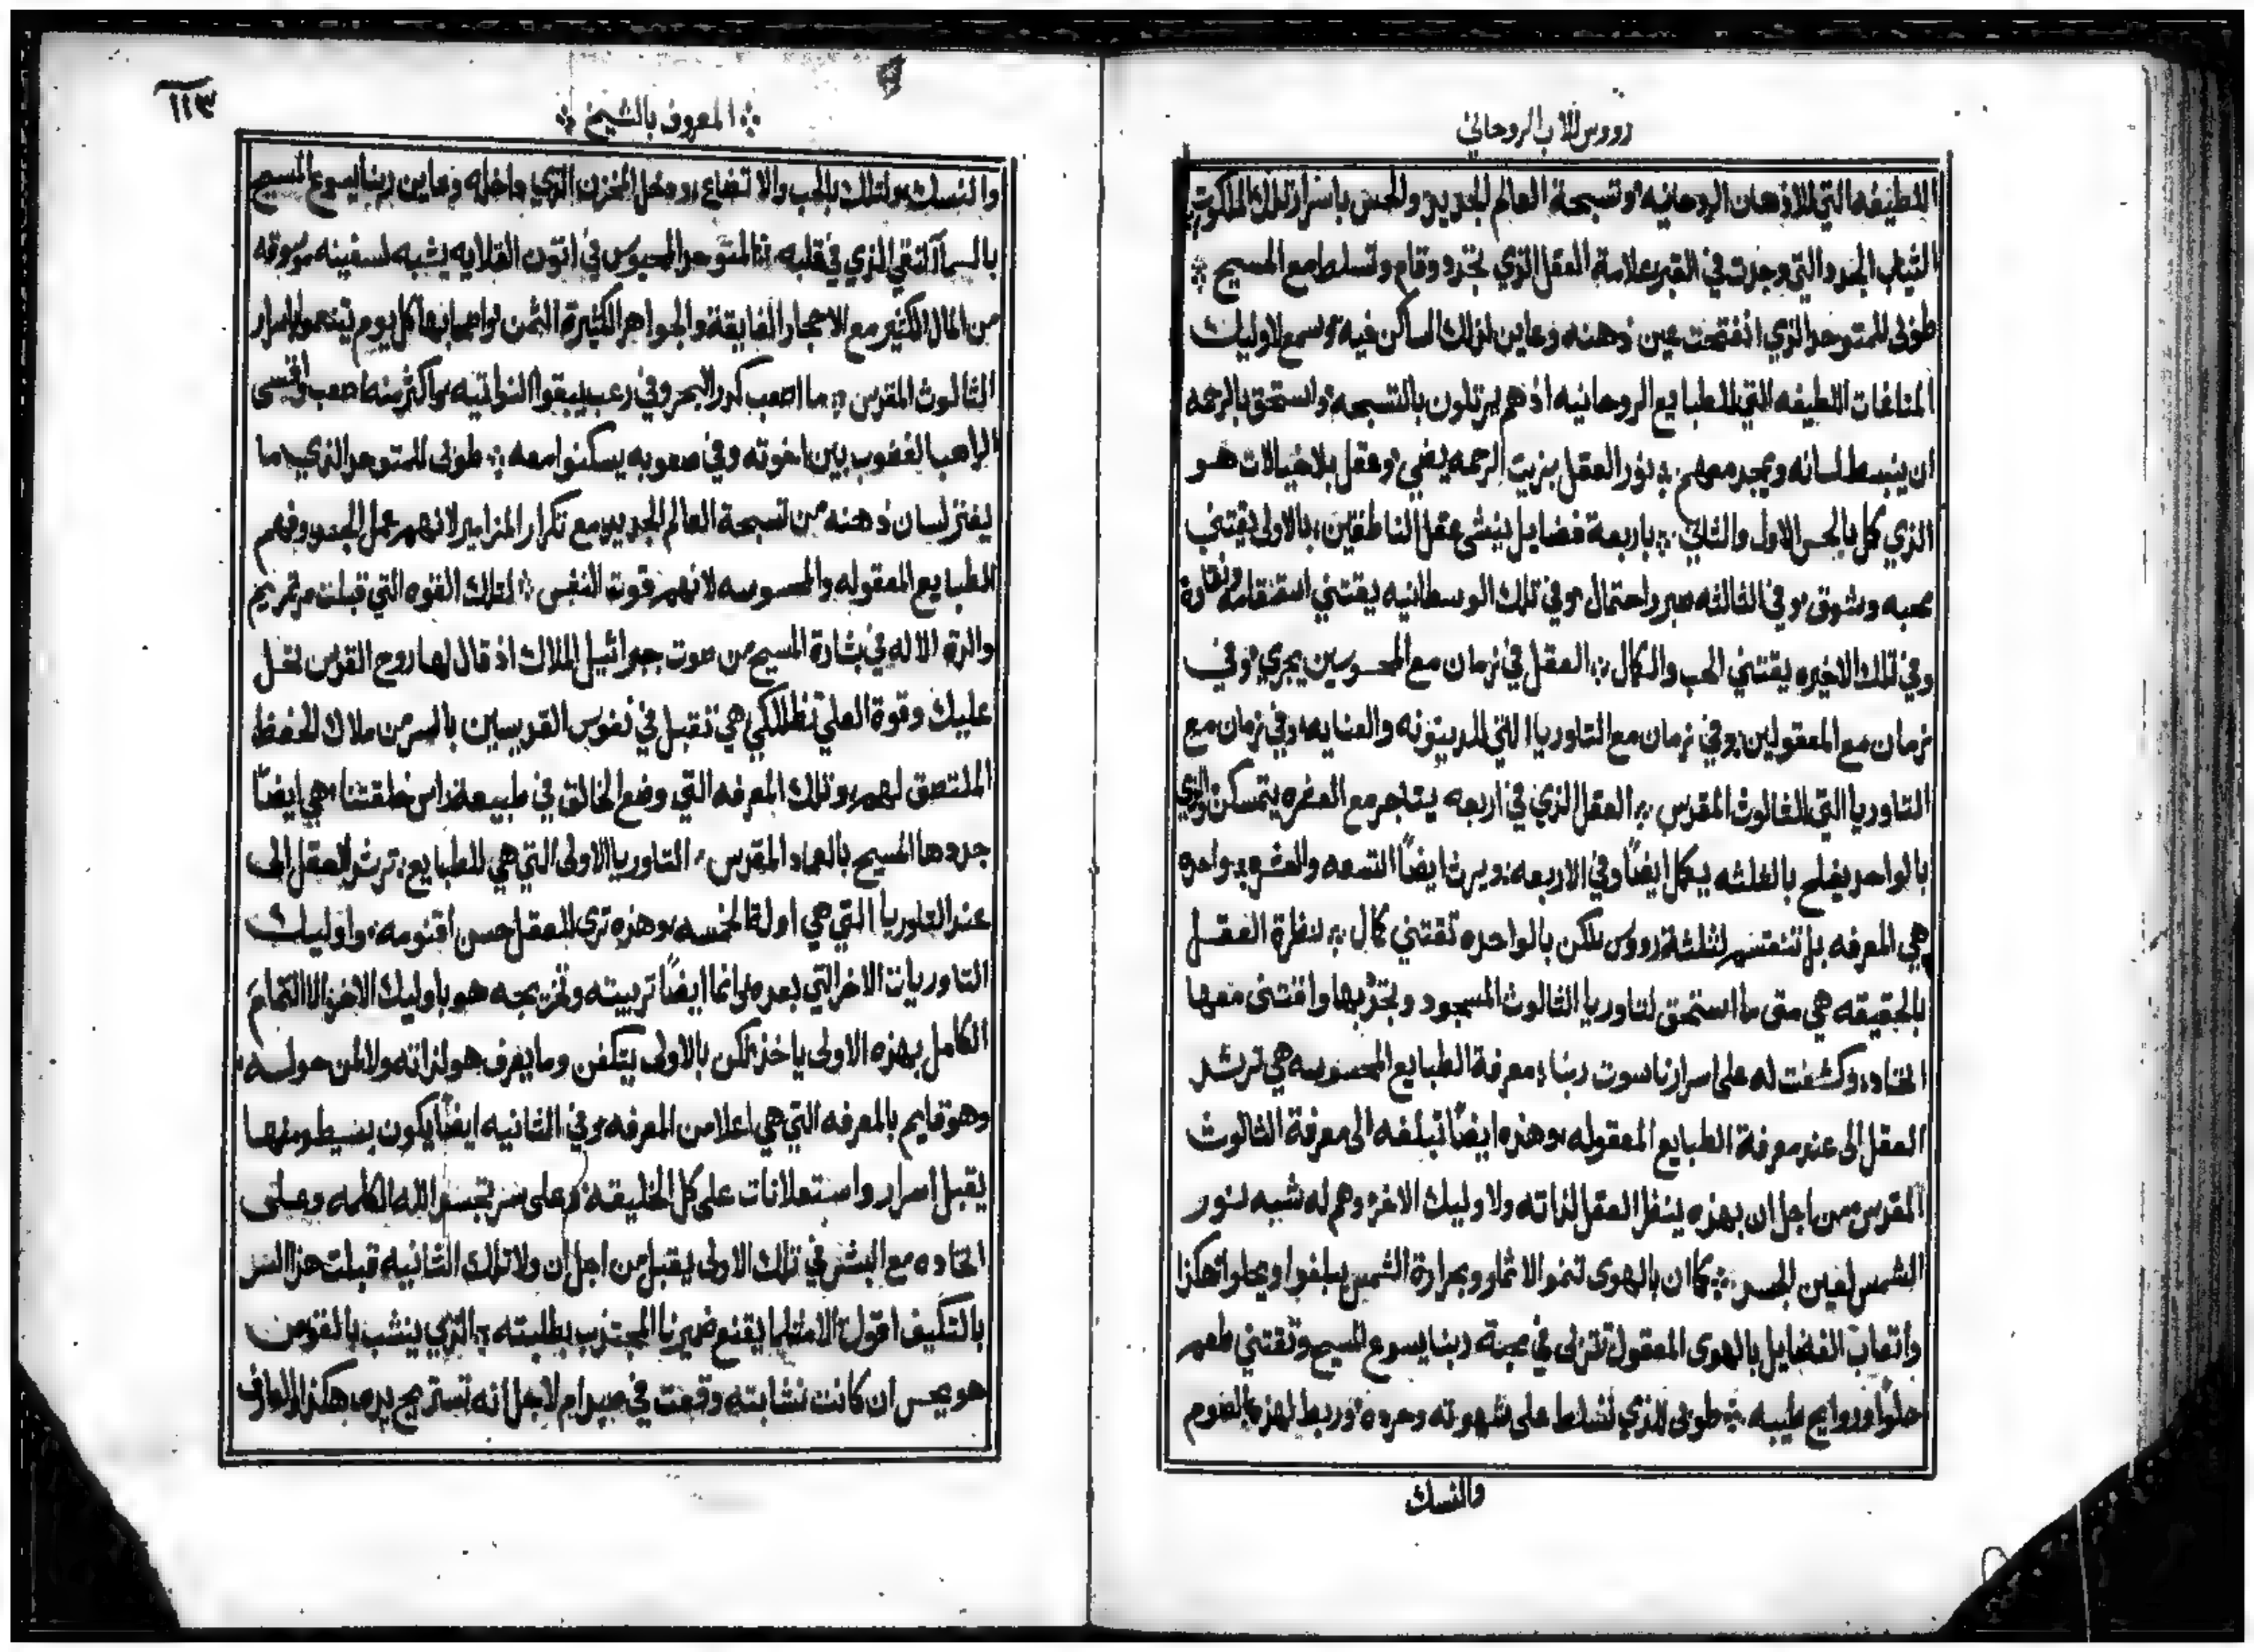 رووس للاب الروحاني
اللطيفه التي للاذهان الروحانيه وتسبحة العالم الجديد والحس باسرار تلك الملكوت
الثياب الجدد التي وجدت في القبر علامة العقل الذي تجدد وقام وتسلط مع المسيح
طوبى للمتوحد الذي انفتحت عين ذهنه وعاين لذلك الساكن فيه وسمع لاوليك
المناغات اللطيفه التي للطبايع الروحانيه اذ هم يرتلون بالتسبحه واستحق بالرحمه
ان ينبسط لسانه ويمجد معهم نور العقل بزيت الرحمه يضي وعقل بلا خيالات هو
الذي كمل بالحس الاول والثاني باربعة فضايل ينشى عقل الناطقين بالاولى يقتني
محبه وشوق وفي الثالثه صبر واحتمال وفي تلك الوسطانيه يقتني استقامه ونقاوة
وفي تلك الاخيره يقتني الحب والكمال العقل في زمان مع المحسوسين يجري وفي
زمان مع المعقولين وفي زمان مع التاوريا التي للدينونه والعنايه وفي زمان مع
التاوريا التي للثالوث المقدس العقل الذي في اربعه يتاجر مع العشره يتمسكن والذي
بالواحد يفلح بالثلثه يكمل ايضًا وفي الاربعه ويرث ايضًا التسعه والعشره واحده
هي المعرفه بل تنقسم لثلثة رووس لكن بالواحده تقتني كمال نظرة العقل
بالحقيقه هي متى ما استحق لتاوريا الثالوث المسجود وتجدد بها واقتنى معها
اتحاد وكشفت له على اسرار ناسوت ربنا معرفة الطبايع المحسوسه هي ترشد
العقل الى عند معرفة الطبايع المعقوله وهذه ايضًا تبلغه الى معرفة الثالوث
المقدس من اجل ان بهذه ينظر العقل لذاته ولاوليك الاخر وهم له شبه لنور
الشمس لعين الجسد كما ان بالهوى تنموا الاثمار وبحرارة الشمس يبلغوا ويحلوا هكذا
واتعاب الفضايل بالهوى المعقول تتربى في محبة ربنا يسوع المسيح وتقتني طعم
حلوًا وروايح طيبه طوبى للذي تسلط على شهوته وحرده وربط لهذه بالصوم
والنسك
المعروف بالشيخ
١١٣
والنسك ولتلك بالحب والاتضاع ودخل المخزن الذي داخله وعاين ربنا يسوع المسيح
بالسما النقي الذي في قلبه المتوحد المحبوس في اتون القلايه يشبه لسفينه موسوقه
من المال الكثير مع الاحجار الفايقه والجواهر الكثيرة الثمن واصحابها كل يوم يتنعموا باسرار
الثالوث المقدس ما اصعب كدر البحر وفي رعب يبقوا النواتيه واكثر منه اصعب واقسى
الراهب الغضوب بين اخوته وفي صعوبه يسكنوا معه طوبى للمتوحد الذي ما
يفتر لسان ذهنه من تسبحة العالم الجديد مع تكرار المزامير لانهم عمل الجسد وفهم
الطبايع المعقوله والمحسوسه لانهم قوت النفس لتلك القوه التي قبلت مرتمريم
والدة الاله في بشارة المسيح من صوت جبرائيل الملاك اذ قال لها روح القدس تحل
عليك وقوة العلي تظللكي هي تقبل في نفوس القديسين بالسر من ملاك الحفظ
الملتصق لهم وتلك المعرفه التي وضع الخالق في طبيعة راس خلقتنا هي ايضًا
جددها المسيح بالعماد المقدس التاوريا الاولى التي هي للطبايع ترشد العقل الى
عند التاوريا التي هي اولة الخمسه وهذه ترى للعقل حسن اقنومه واوليك
التاوريات الاخر التي بعده وانما ايضًا تربيته وتخريجه هو باوليك الاخر الا التمام
الكامل بهذه الاولى ياخذ لكن بالاولى يتكفن وما يعرف هو لذاته ولا لمن حوله
وهو قايم بالمعرفه التي هي اعلا من المعرفه وفي الثانيه ايضًا يكون بسيط ومنها
يقبل اسرار واستعلانات على كل الخليقه وعلى سر تجسد الله الكلمه وعلى
اتحاده مع البشر في تلك الاولى يقبل من اجل ان ولا تلك الثانيه قبلت هذا السر
بالتكليف اقول الامثلما يقنع ضميرنا المجتذب بطلبته الذي ينشب بالقوس
هو يحس ان كانت نشابته وقعت في ميدام لاجل انه تستريح يده هكذا العارف